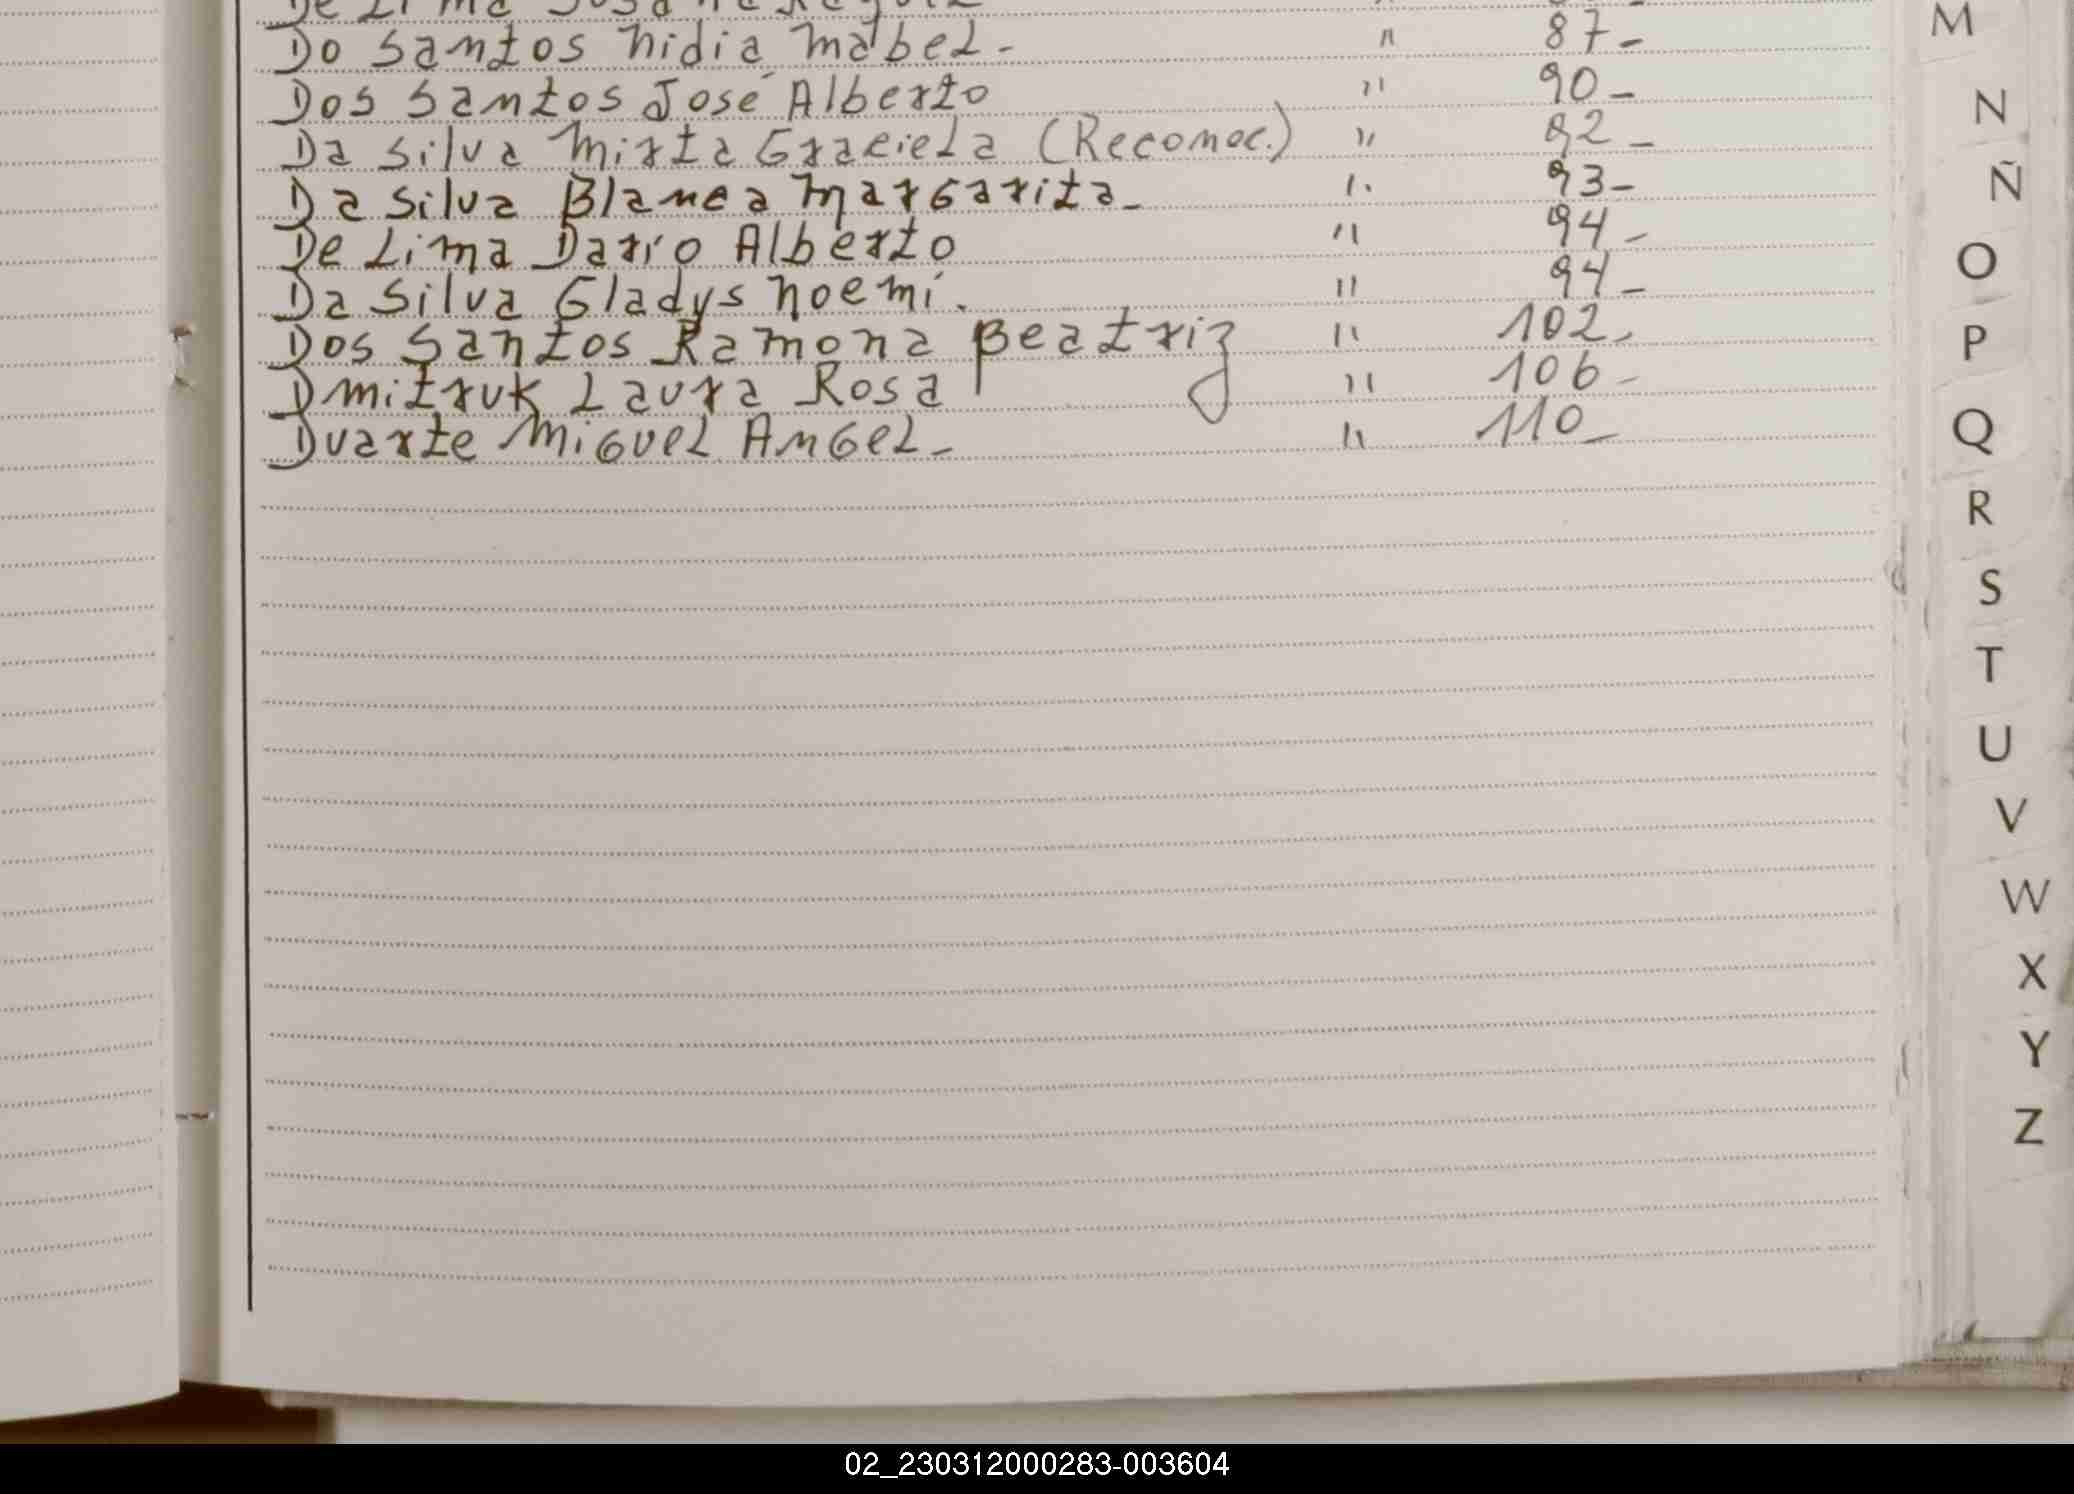 De Lima
Do Santos Nidia Mabel - " 87 -
Dos Santos José Alberto " 90 -
Da Silva Mirta Graciela (Reconoc.) " 92 -
Da Silva Blanca Margarita - " 93 -
De Lima Dario Alberto " 94 -
Da Silva Gladys Noemí. " 94 -
Dos Santos Ramona Beatriz " 102 -
Dmitruk Laura Rosa " 106 -
Duarte Miguel Angel - " 110 -
M
N
Ñ
O
P
Q
R
S
T
U
V
W
X
Y
Z
02_230312000283-003604